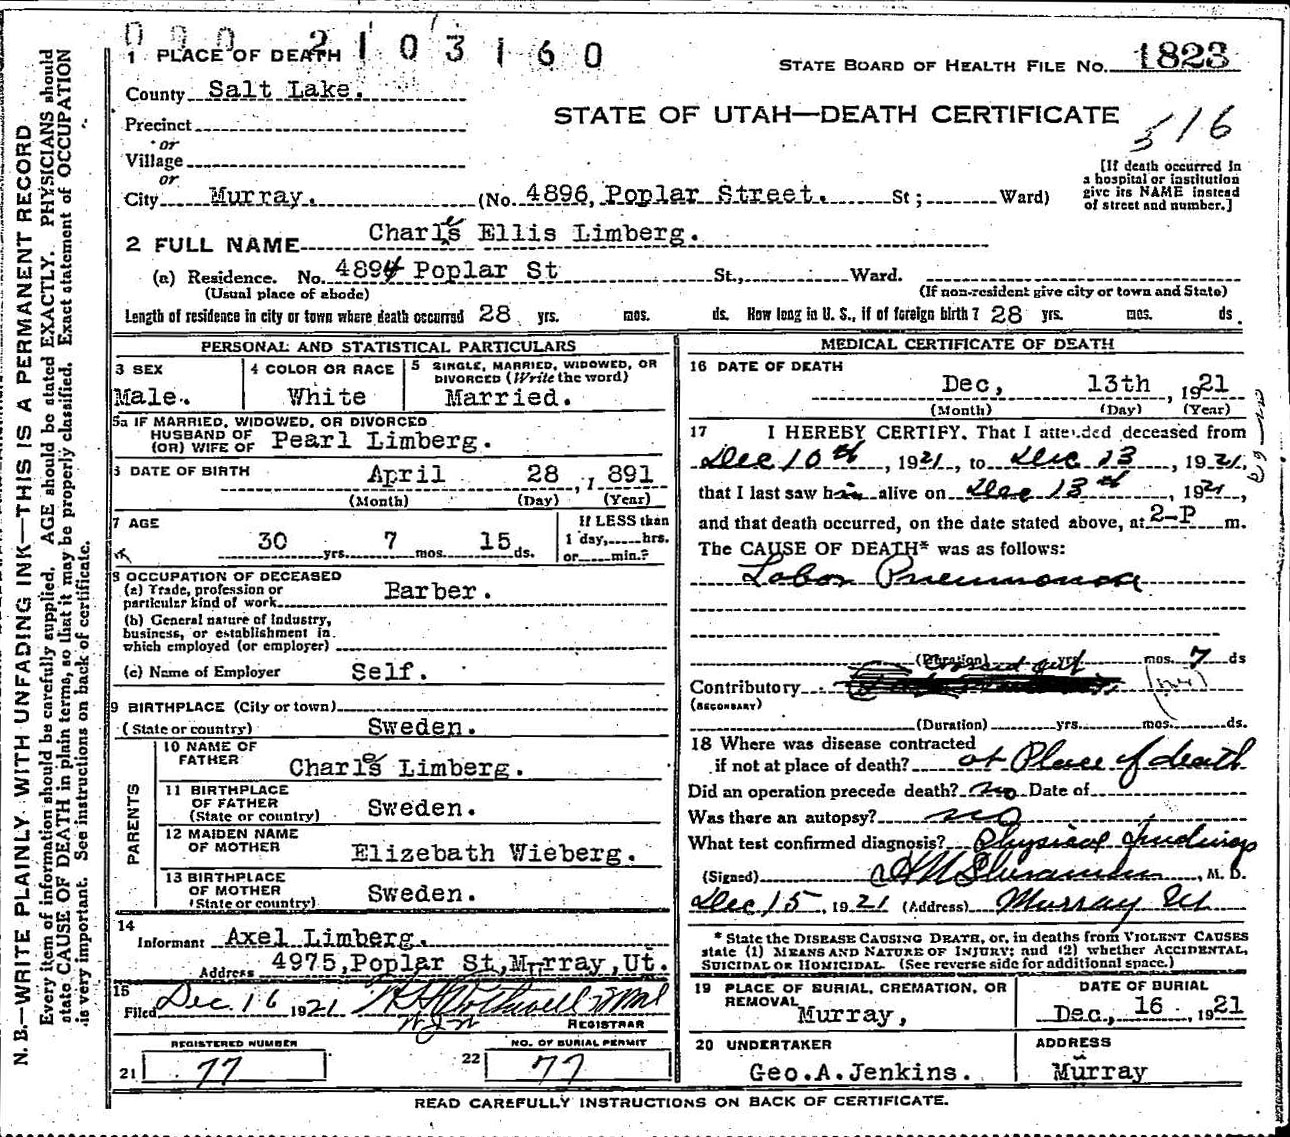 0 0 0 2 1 0 3 1 6 0
1 PLACE OF DEATH
STATE BOARD OF HEALTH FILE NO. 1823
County Salt Lake.
STATE OF UTAH—DEATH CERTIFICATE
516
Precinct
or
Village
or
City Murray. (No. 4896, Poplar Street. St ; Ward)
[If death occurred in a hospital or institution give its NAME instead of street and number.]
2 FULL NAME Charles Ellis Limberg.
(a) Residence. No. 4894 Poplar St St., Ward.
(Usual place of abode) (If non-resident give city or town and State)
Length of residence in city or town where death occurred 28 yrs. mos. ds. How long in U. S., if of foreign birth ? 28 yrs. mos. ds.
PERSONAL AND STATISTICAL PARTICULARS
3 SEX
Male.
4 COLOR OR RACE
White
5 SINGLE, MARRIED, WIDOWED, OR DIVORCED (Write the word)
Married.
5a IF MARRIED, WIDOWED, OR DIVORCED
HUSBAND OF
(OR) WIFE OF Pearl Limberg.
6 DATE OF BIRTH
April 28 , 1891
(Month) (Day) (Year)
7 AGE
30 yrs. 7 mos. 15 ds.
If LESS than
1 day, hrs.
or min.?
8 OCCUPATION OF DECEASED
(a) Trade, profession or
particular kind of work Barber.
(b) General nature of Industry,
business, or establishment in
which employed (or employer)
(c) Name of Employer Self.
9 BIRTHPLACE (City or town)
(State or country) Sweden.
PARENTS
10 NAME OF
FATHER Charles Limberg.
11 BIRTHPLACE
OF FATHER
(State or country) Sweden.
12 MAIDEN NAME
OF MOTHER Elizebath Wieberg.
13 BIRTHPLACE
OF MOTHER
(State or country) Sweden.
14
Informant Axel Limberg.
Address 4975, Poplar St, Murray, Ut.
15
Filed Dec. 16 1921
REGISTRAR
REGISTERED NUMBER
21 77
NO. OF BURIAL PERMIT
22 77
MEDICAL CERTIFICATE OF DEATH
16 DATE OF DEATH
Dec, 13th , 1921
(Month) (Day) (Year)
17 I HEREBY CERTIFY, That I attended deceased from
Dec 10th , 1921, to Dec 13 , 1921,
that I last saw him alive on Dec 13th , 1921,
and that death occurred, on the date stated above, at 2-P m.
The CAUSE OF DEATH* was as follows:
Lobor Pneumonia
(Duration) mos. 7 ds
Contributory
(SECONDARY)
(Duration) yrs. mos. ds.
18 Where was disease contracted
if not at place of death? at Place of death
Did an operation precede death? no Date of
Was there an autopsy? no
What test confirmed diagnosis? Physical findings
(Signed) , M. D.
Dec 15 , 1921 (Address) Murray Ut
* State the DISEASE CAUSING DEATH, or, in deaths from VIOLENT CAUSES
state (1) MEANS AND NATURE OF INJURY; and (2) whether ACCIDENTAL,
SUICIDAL OR HOMICIDAL. (See reverse side for additional space.)
19 PLACE OF BURIAL, CREMATION, OR
REMOVAL Murray,
DATE OF BURIAL
Dec., 16 , 1921
20 UNDERTAKER
Geo.A.Jenkins.
ADDRESS
Murray
READ CAREFULLY INSTRUCTIONS ON BACK OF CERTIFICATE.
N. B.—WRITE PLAINLY WITH UNFADING INK—THIS IS A PERMANENT RECORD
Every item of information should be carefully supplied. AGE should be stated EXACTLY. PHYSICIANS should
state CAUSE OF DEATH in plain terms, so that it may be properly classified. Exact statement of OCCUPATION
is very important. See instructions on back of certificate.